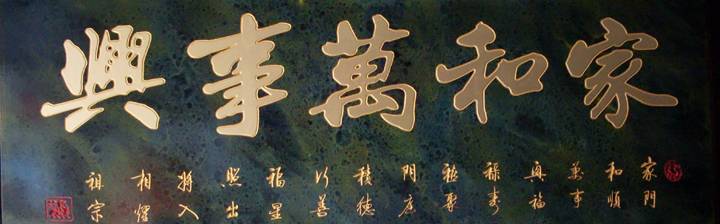 家和萬事興
家門
和順
萬事
興福
祿壽
門庭
積德
行善
福星
照出
將入
相耀
祖宗